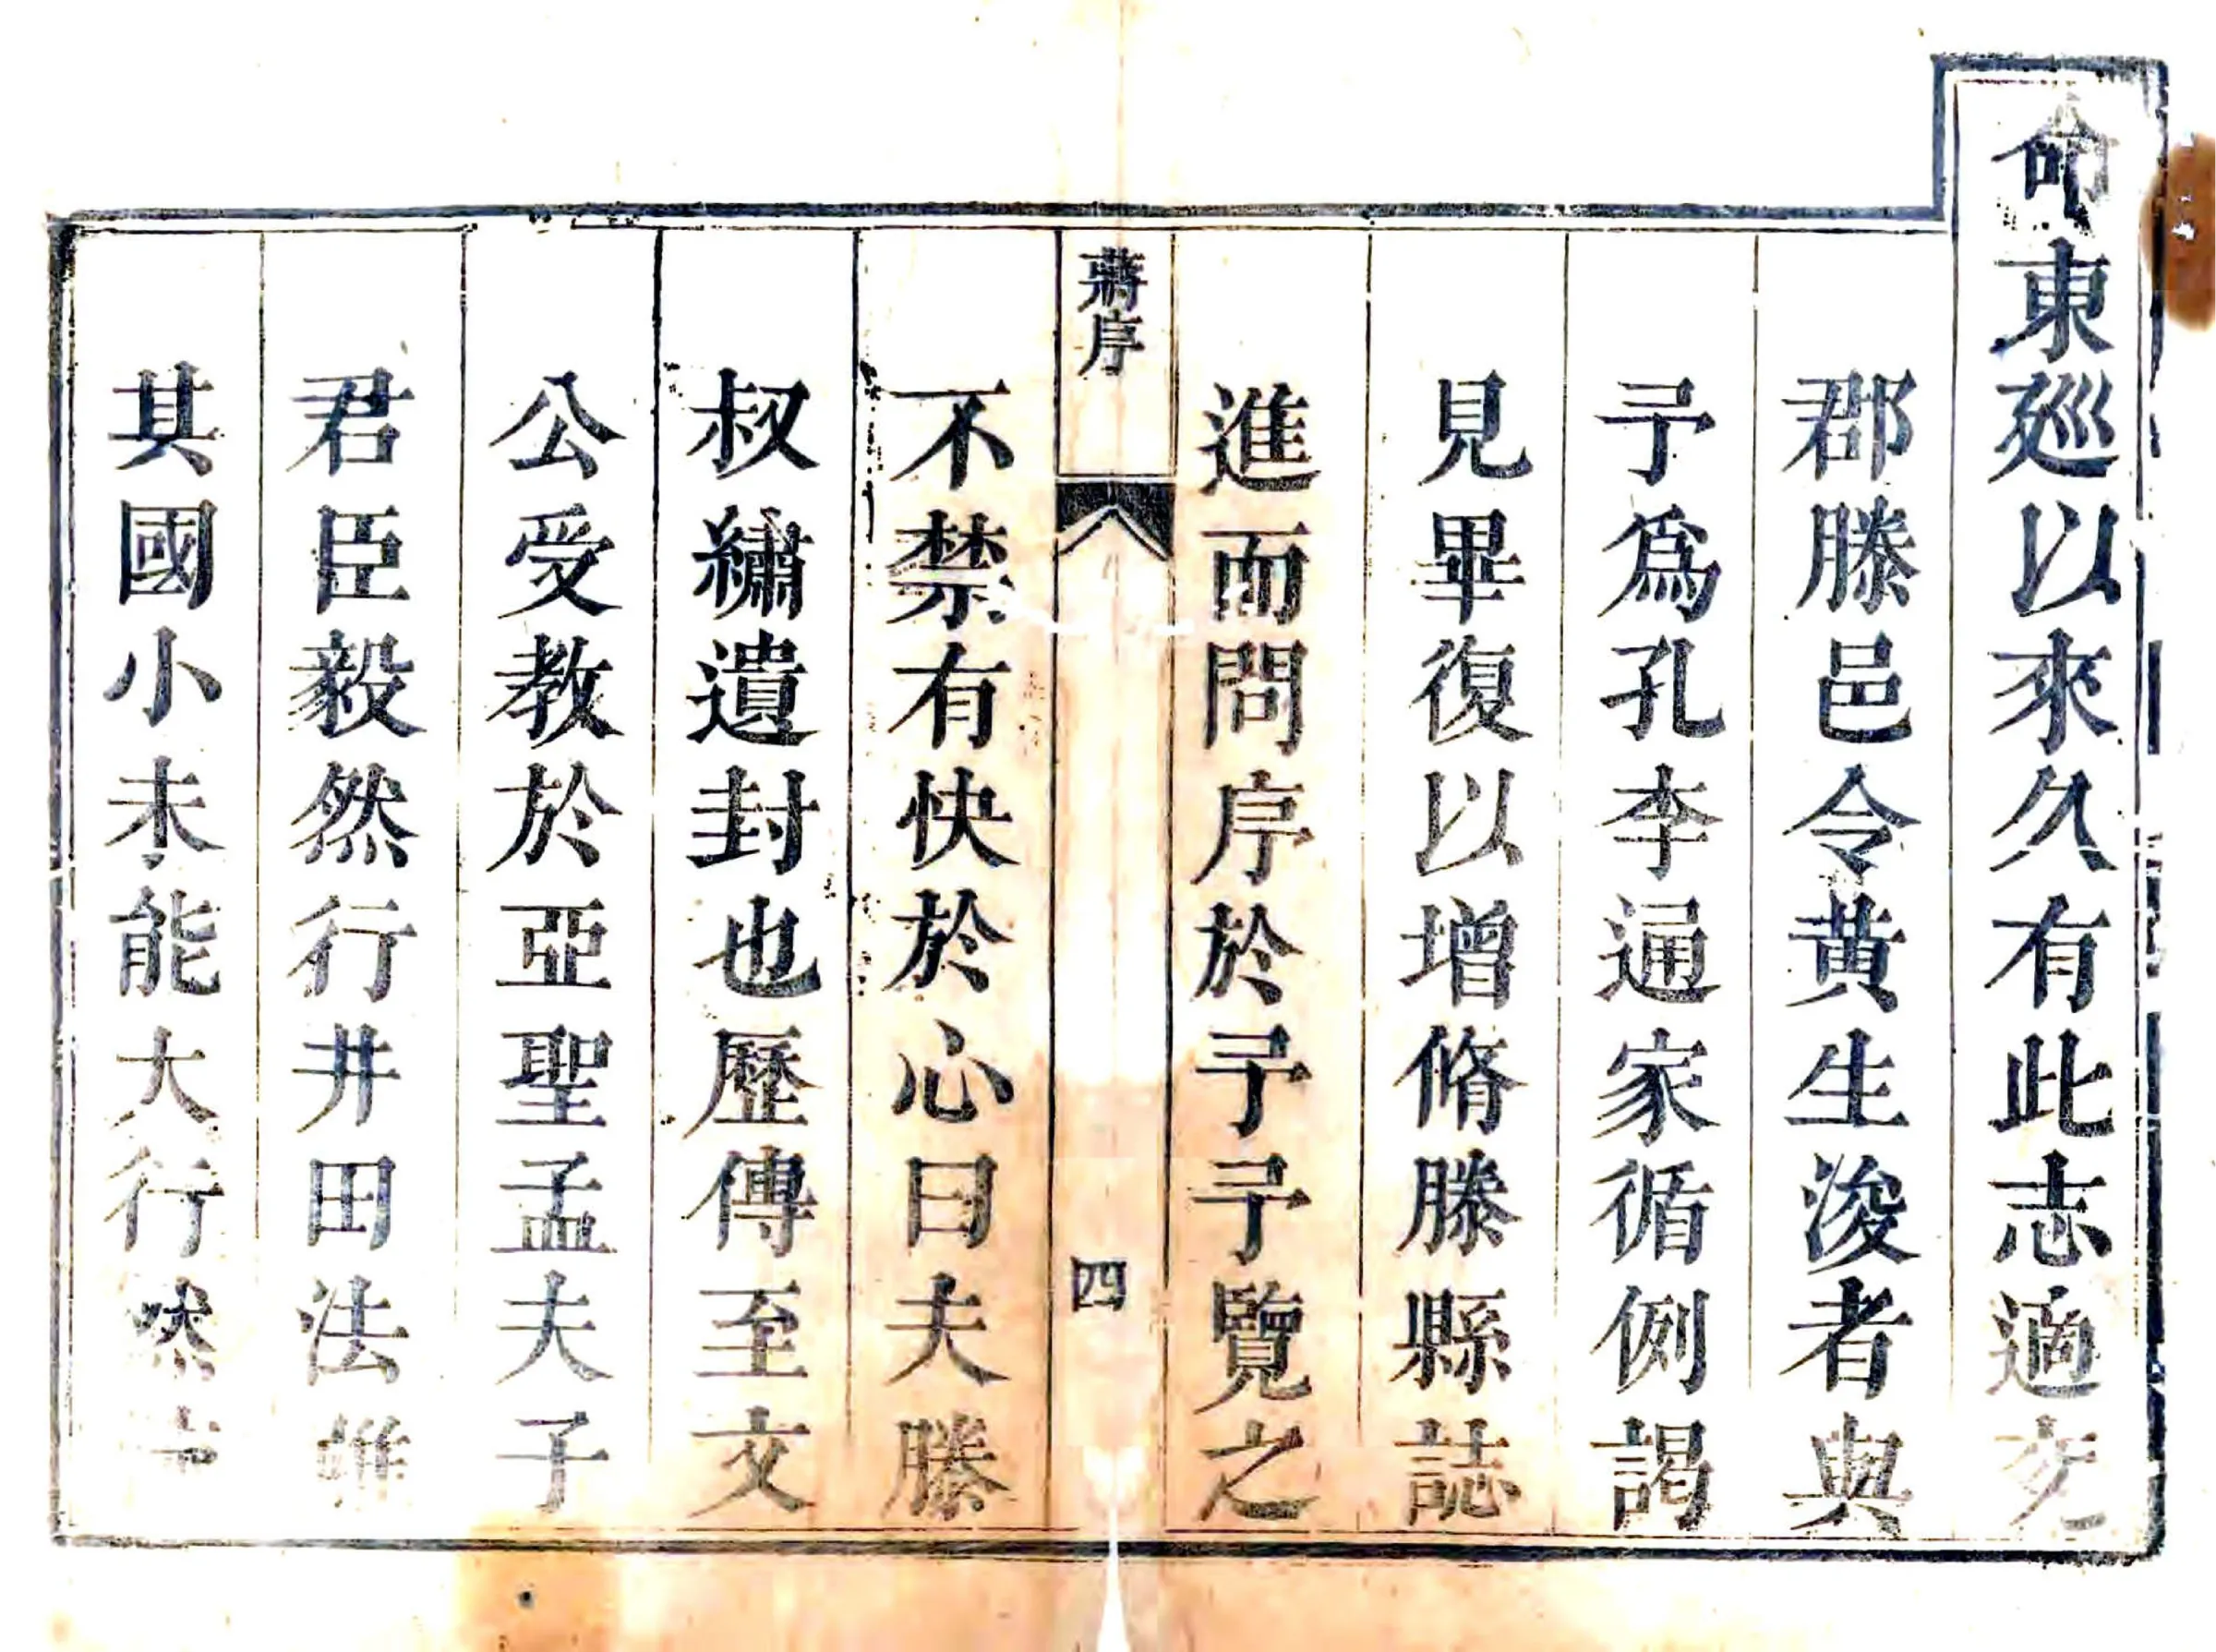 命東廵以來久有此志適兖
郡滕邑令黃生浚者與
予爲孔李通家循例謁
見畢復以增脩滕縣誌
進而問序於予予覽之
蔣序
四
不禁有快於心曰夫滕
叔繡遺封也歷傳至文
公受教於亞聖孟夫子
君臣毅然行井田法雖
其國小未能大行然